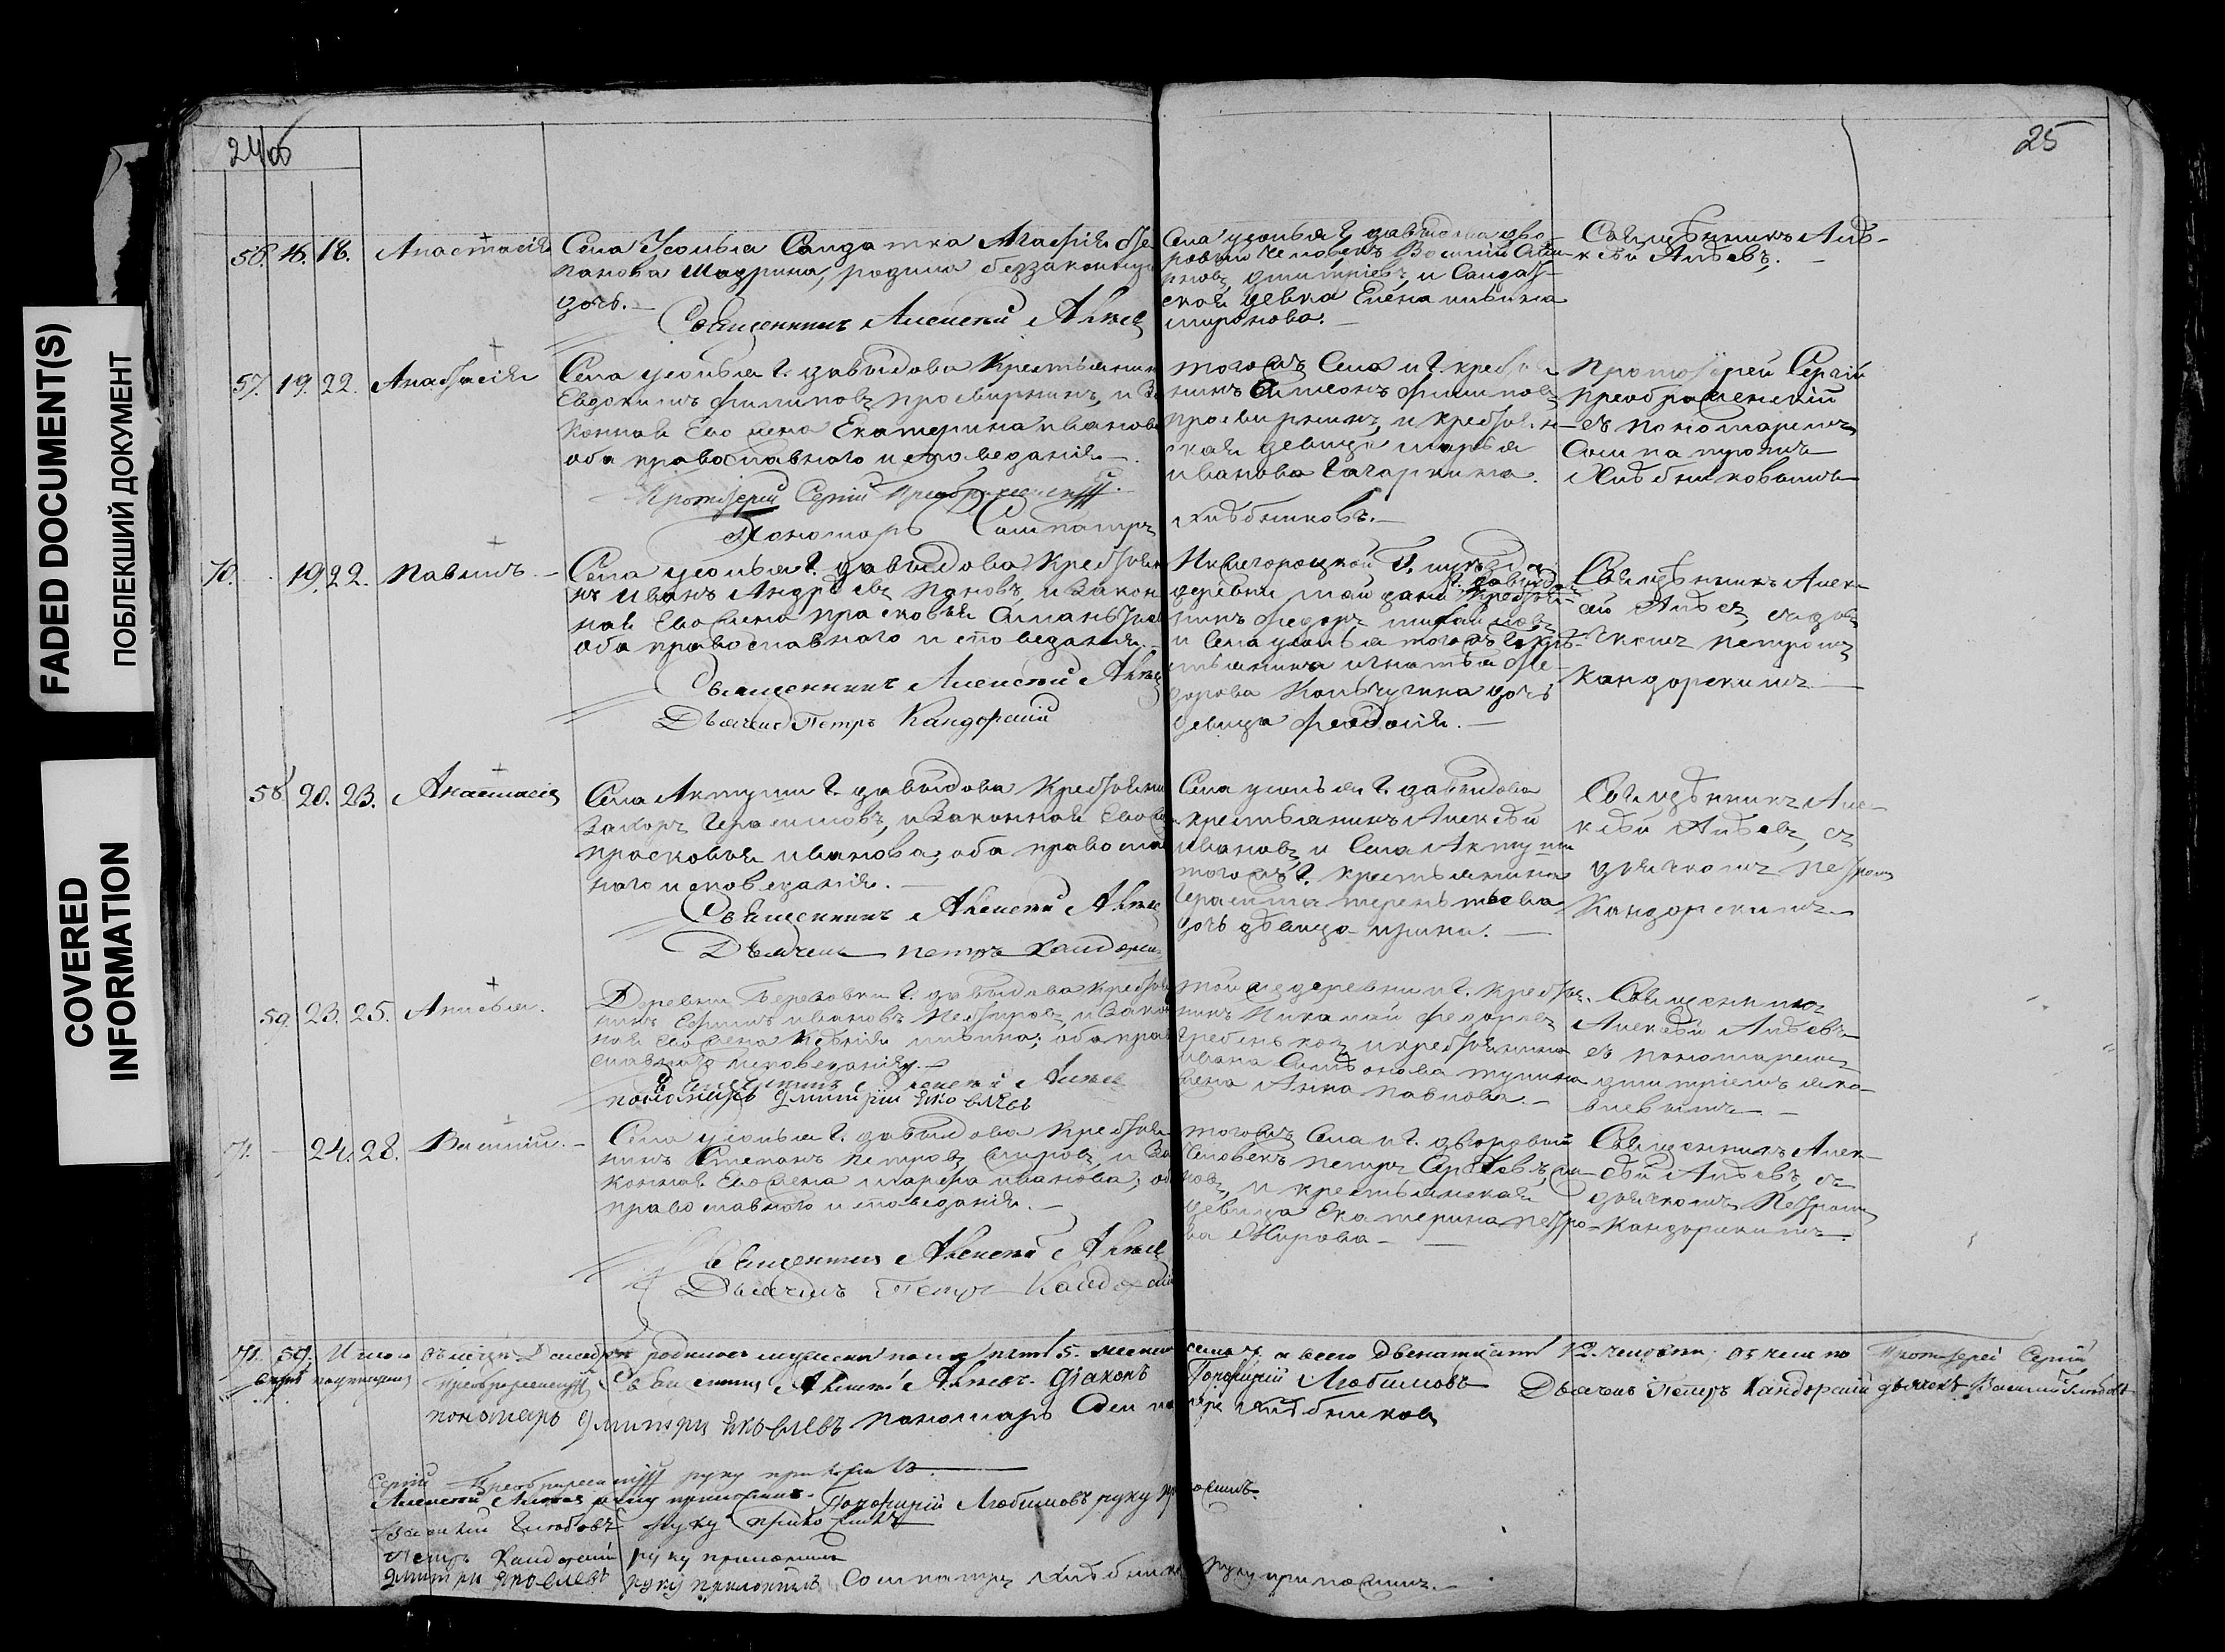 FADED DOCUMENT(S)
ПОБЛЕКШИЙ ДОКУМЕНТ
COVERED
INFORMATION
24 об
25
56. 16. 18. Анастасія
Села Усолья Салдатка Агафія Сте
панова Шадрина, родила беззаконную
дочь.
Священникъ Алексій
Села усолья г. давыдова дво-
ровый человѣкъ Василій
дмитріевъ, и Салдат-
ская девка Елена
миронова.
Священникъ Алѣ-
ксѣй
57. 19. 22. Анастасія
Села усолья г. давыдова Крестьянин
Евдокимъ филиповъ просвирнинъ, и За
конная Его жена Екатерина иванова
оба православнаго исповеданія.
Протоіерей Сергій Преображенскій
Пономарь Сосипатръ
тогожъ Села и г. крестья
нинъ Симеонъ филиповъ
просвирнинъ, и крестьян-
ская девица марья
иванова Гагаркина.
хлѣбниковъ.
Протоіерей Сергій
преображенскій
съ пономаремъ
Сосипатромъ
Хлѣбниковымъ
70. 19. 22. Павелъ.
Села усолья г. давыдова Крестьян
нъ Иванъ Андреевъ Пановъ, и Закон
ная Его жена прасковья
оба православнаго исповеданія.
Священникъ Алексій
Дьячекъ Петръ Кандорскій
Нижегороцкой Г.
деревни г. давыдова
нинъ федоръ
и Села усолья тогожъ г. кре-
стьянина игнатья Фе-
дорова Кольчугина дочь
девица феодосія.
Священникъ Алек-
сѣй съ дья-
чкомъ петромъ
Кандорскимъ
58. 20. 23. Анастасія
Села Актуши г. давыдова Крестьянин
Захаръ Герасимовъ, и Законная Его
прасковья иванова, оба православ
наго исповеданія.
Священникъ Алексій
Дьячекъ петръ Кандорск
Села усолья г. давыдова
крестьянинъ Алексѣй
ивановъ, и Села Актуши
тогожъ г. крестьянина
Герасима терентьева
дочь дѣвица ирина.
Священникъ Але-
ксѣй съ
дьячкомъ петромъ
Кандорскимъ
59. 23. 25. Анисья.
Деревни Березовки г. давыдова крестья
нинъ Ефимъ ивановъ и Закон
ная Его жена оба прав
славнаго исповеданія.
Священникъ Алексій
пономарь дмитрій яковлевъ
той же деревни и г. крестья
нинъ Николай федоровъ
и крестьянина
ивана
жена Анна павлова.
Священникъ
Алексѣй
съ пономаремъ
дмитріемъ яко-
влевымъ
71. 24. 28. Василій.
Села усолья г. давыдова Крестья
нинъ Степанъ петровъ и За
конная Его жена марфа иванова; оба
православнаго исповеданія.
Священникъ Алексій
Дьячекъ Петръ Кандорскій
тогожъ Села и г. дворовый
Человѣкъ петръ
и крестьянская
девица Екатерина петро-
ва Жирова
Священникъ Алек-
сѣй съ
дьячкомъ Петромъ
Кандорскимъ
71. 59. Итого въ месяцѣ Декабрѣ родилось мужеска пола пять 5. женска семь 7. а всего двенатцать 12. человѣкъ; въ чемъ по Протоіерей Сергій
Преображенскій Священникъ Алексій діаконъ Порфирій Любимовъ Дьячекъ Петръ Кандорскій дьячекъ Василій
пономарь дмитрій яковлевъ пономарь Соси патръ хлѣбниковъ
Сергій Преображенскій руку приложилъ.
Алексій руку приложилъ. Порфирій Любимовъ руку приложилъ.
Василій руку приложилъ
Петръ Кандорскій руку приложилъ
дмитрій яковлевъ руку приложилъ Сосипатръ хлѣбниковъ руку приложилъ.